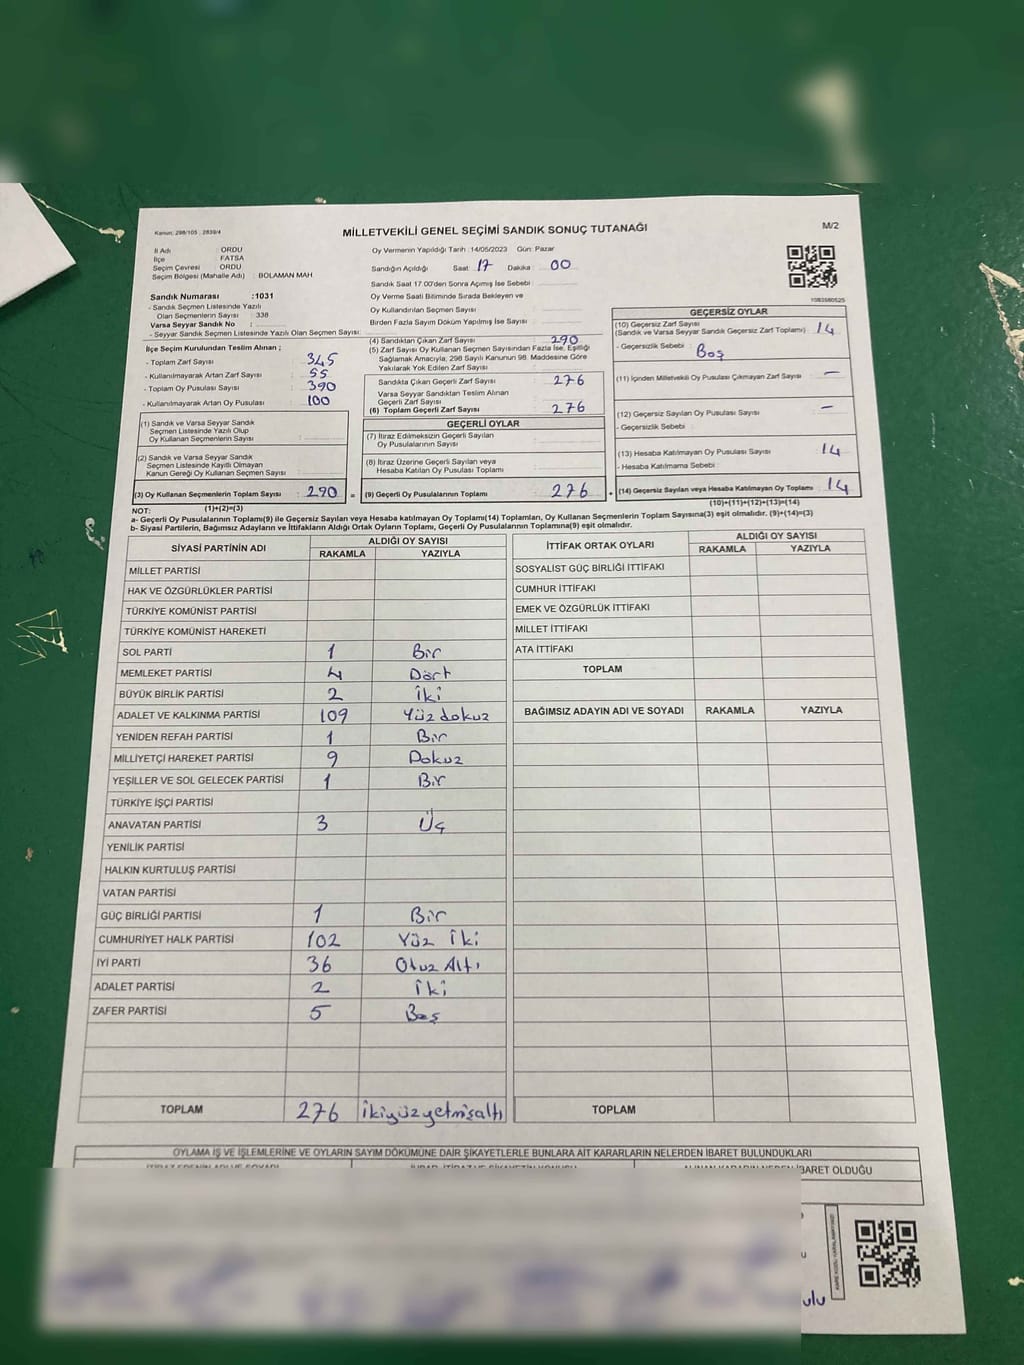 Kanun: 298/105 , 2839/4
MİLLETVEKİLİ GENEL SEÇİMİ SANDIK SONUÇ TUTANAĞI
M/2
İl Adı : ORDU
İlçe : FATSA
Seçim Çevresi : ORDU
Seçim Bölgesi (Mahalle Adı) : BOLAMAN MAH
Sandık Numarası :1031
- Sandık Seçmen Listesinde Yazılı
Olan Seçmenlerin Sayısı : 338
Varsa Seyyar Sandık No :
- Seyyar Sandık Seçmen Listesinde Yazılı Olan Seçmen Sayısı:
Oy Vermenin Yapıldığı Tarih :14/05/2023 Gün: Pazar
Sandığın Açıldığı Saat : 17 Dakika : 00
Sandık Saat 17.00'den Sonra Açılmış İse Sebebi :
Oy Verme Saati Bitiminde Sırada Bekleyen ve
Oy Kullandırılan Seçmen Sayısı :
Birden Fazla Sayım Döküm Yapılmış İse Sayısı :
1083580525
İlçe Seçim Kurulundan Teslim Alınan ;
- Toplam Zarf Sayısı : 345
- Kullanılmayarak Artan Zarf Sayısı : 55
- Toplam Oy Pusulası Sayısı : 390
- Kullanılmayarak Artan Oy Pusulası : 100
(1) Sandık ve Varsa Seyyar Sandık
Seçmen Listesinde Yazılı Olup
Oy Kullanan Seçmenlerin Sayısı :
(2) Sandık ve Varsa Seyyar Sandık
Seçmen Listesinde Kayıtlı Olmayan
Kanun Gereği Oy Kullanan Seçmen Sayısı :
(3) Oy Kullanan Seçmenlerin Toplam Sayısı : 290 =
(1)+(2)=(3)
(4) Sandıktan Çıkan Zarf Sayısı : 290
(5) Zarf Sayısı Oy Kullanan Seçmen Sayısından Fazla İse, Eşitliği
Sağlamak Amacıyla; 298 Sayılı Kanunun 98. Maddesine Göre
Yakılarak Yok Edilen Zarf Sayısı :
Sandıkta Çıkan Geçerli Zarf Sayısı : 276
Varsa Seyyar Sandıktan Teslim Alınan
Geçerli Zarf Sayısı :
(6) Toplam Geçerli Zarf Sayısı : 276
GEÇERLİ OYLAR
(7) İtiraz Edilmeksizin Geçerli Sayılan
Oy Pusulalarının Sayısı :
(8) İtiraz Üzerine Geçerli Sayılan veya
Hesaba Katılan Oy Pusulası Toplamı :
(9) Geçerli Oy Pusulalarının Toplamı : 276 +
GEÇERSİZ OYLAR
(10) Geçersiz Zarf Sayısı
(Sandık ve Varsa Seyyar Sandık Geçersiz Zarf Toplamı) : 14
- Geçersizlik Sebebi : Boş
(11) İçinden Milletvekili Oy Pusulası Çıkmayan Zarf Sayısı : –
(12) Geçersiz Sayılan Oy Pusulası Sayısı : –
- Geçersizlik Sebebi :
(13) Hesaba Katılmayan Oy Pusulası Sayısı : 14
- Hesaba Katılmama Sebebi :
(14) Geçersiz Sayılan veya Hesaba Katılmayan Oy Toplamı : 14
(10)+(11)+(12)+(13)=(14)
NOT:
a- Geçerli Oy Pusulalarının Toplamı(9) ile Geçersiz Sayılan veya Hesaba katılmayan Oy Toplamı(14) Toplamları, Oy Kullanan Seçmenlerin Toplam Sayısına(3) eşit olmalıdır. (9)+(14)=(3)
b- Siyasi Partilerin, Bağımsız Adayların ve İttifakların Aldığı Ortak Oyların Toplamı, Geçerli Oy Pusulalarının Toplamına(9) eşit olmalıdır.
SİYASİ PARTİNİN ADI ALDIĞI OY SAYISI
RAKAMLA YAZIYLA
MİLLET PARTİSİ
HAK VE ÖZGÜRLÜKLER PARTİSİ
TÜRKİYE KOMÜNİST PARTİSİ
TÜRKİYE KOMÜNİST HAREKETİ
SOL PARTİ 1 Bir
MEMLEKET PARTİSİ 4 Dört
BÜYÜK BİRLİK PARTİSİ 2 İki
ADALET VE KALKINMA PARTİSİ 109 Yüz dokuz
YENİDEN REFAH PARTİSİ 1 Bir
MİLLİYETÇİ HAREKET PARTİSİ 9 Dokuz
YEŞİLLER VE SOL GELECEK PARTİSİ 1 Bir
TÜRKİYE İŞÇİ PARTİSİ
ANAVATAN PARTİSİ 3 Üç
YENİLİK PARTİSİ
HALKIN KURTULUŞ PARTİSİ
VATAN PARTİSİ
GÜÇ BİRLİĞİ PARTİSİ 1 Bir
CUMHURİYET HALK PARTİSİ 102 Yüz İki
İYİ PARTİ 36 Otuz Altı
ADALET PARTİSİ 2 İki
ZAFER PARTİSİ 5 Beş
TOPLAM 276 İkiyüzyetmişaltı
İTTİFAK ORTAK OYLARI ALDIĞI OY SAYISI
RAKAMLA YAZIYLA
SOSYALİST GÜÇ BİRLİĞİ İTTİFAKI
CUMHUR İTTİFAKI
EMEK VE ÖZGÜRLÜK İTTİFAKI
MİLLET İTTİFAKI
ATA İTTİFAKI
TOPLAM
BAĞIMSIZ ADAYIN ADI VE SOYADI RAKAMLA YAZIYLA
TOPLAM
OYLAMA İŞ VE İŞLEMLERİNE VE OYLARIN SAYIM DÖKÜMÜNE DAİR ŞİKAYETLERLE BUNLARA AİT KARARLARIN NELERDEN İBARET BULUNDUKLARI
İBARET OLDUĞU
ulu